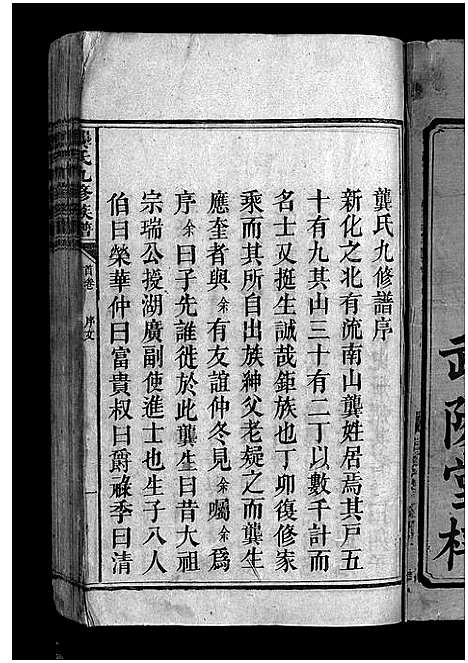 龔氏九修譜序
新化之北有流南山龔姓居焉其戶五
十有九其山三十有二丁以數千計而
名士又挺生誠哉鉅族也丁卯復修家
乘而其所自出族紳父老疑之而龔生
應奎者與余有友誼仲冬見余囑余爲
序余曰子先誰徙於此龔生曰昔大祖
宗瑞公授湖廣副使進士也生子八人
伯曰榮華仲曰富貴叔曰爵祿季曰清
龔氏九修族譜
首卷 序文
一
武陵堂梓